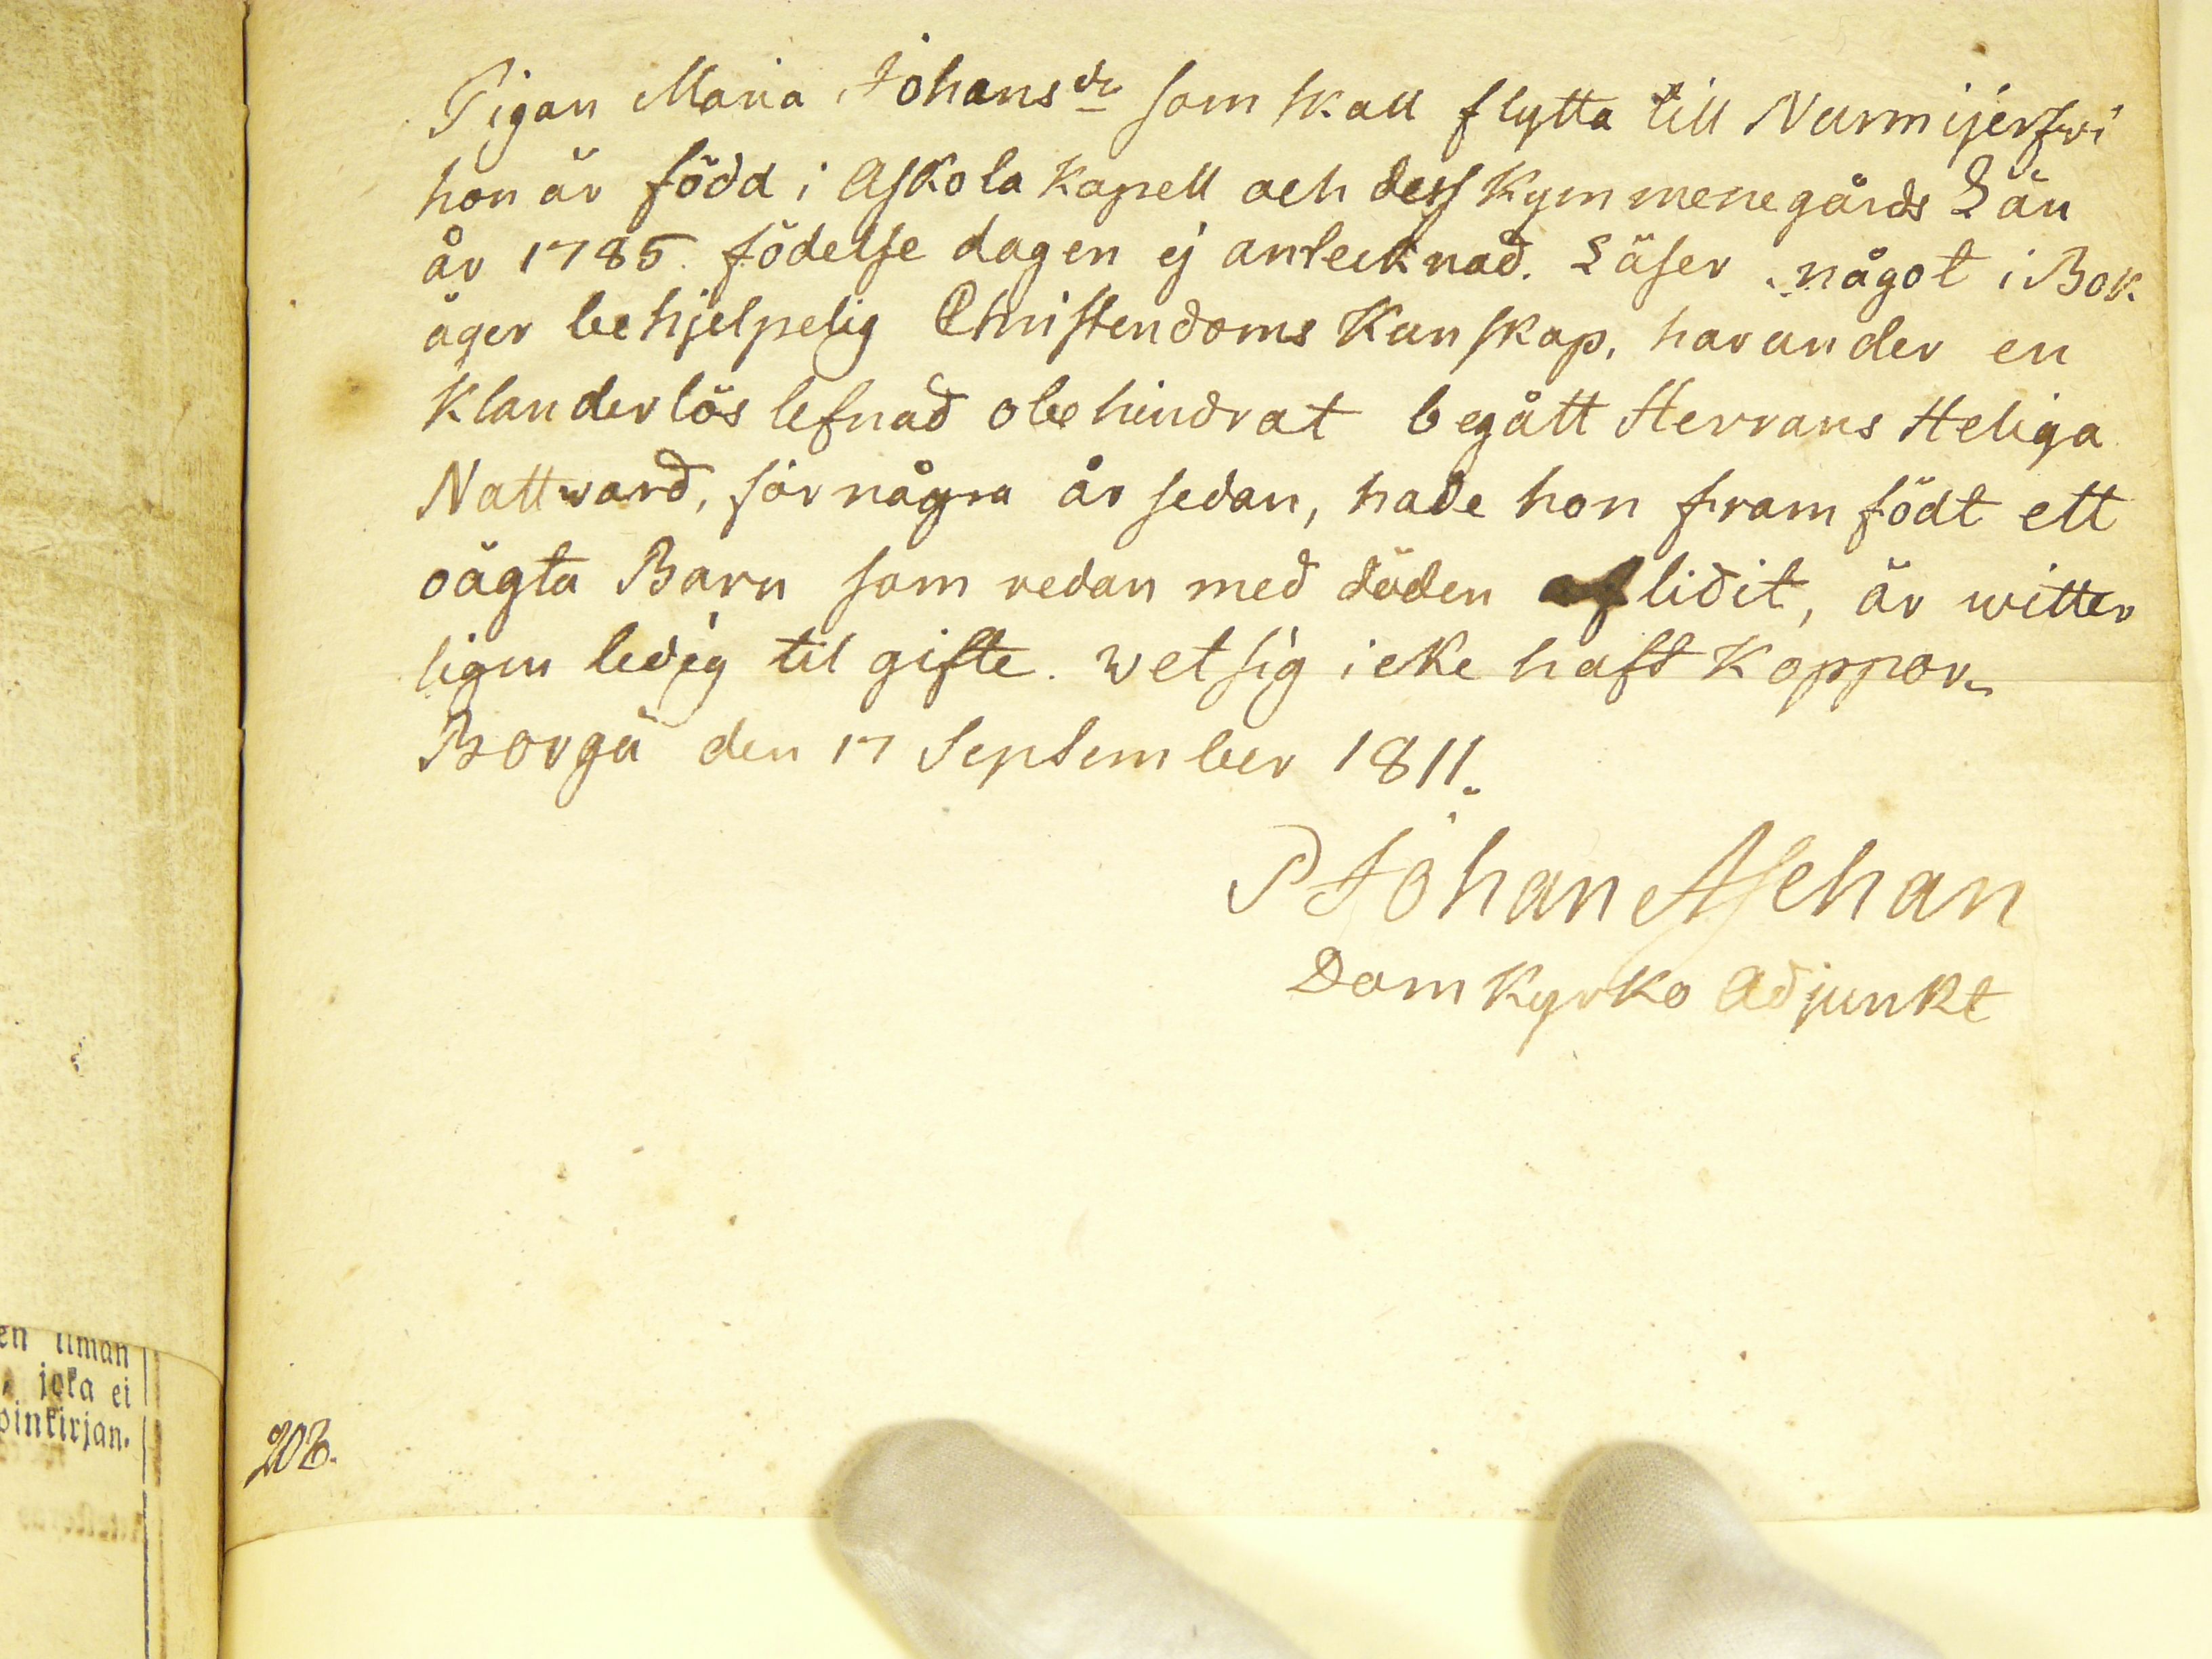 Pigan Maria Johans dr som skall flytta till Nurmijerfwi
hon är född i Askola Kapell och dess Kymmenegårds Län
år 1785. födelse dagen ej anteknad. Läser något i Bok
äger behjelpelig Christendoms Kunskap, har under en
Klanderlös lefnad obehindrat begått Herrans Heliga
Nattward, för några år sedan, hade hon framfödt ett
oägta Barn som redan med döden aflidit, är witter
ligen ledig til gifte. wet sig icke haft Koppor.
Borgå den 17 September 1811.
P Johan Aschan
Domkyrko Adjunkt
en ilman
joka ei
pinkirjan.